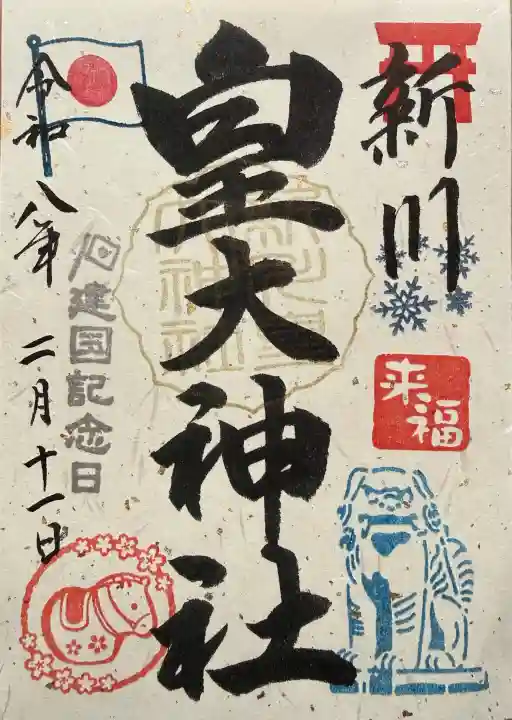 新川
来福
皇大神社
祝建国記念日
令和八年二月十一日